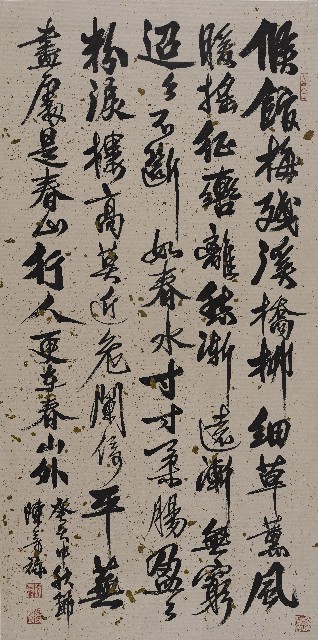 候館梅殘溪橋柳細草薰風
暖搖征轡離愁漸遠漸無窮
迢々不斷如春水寸寸柔腸盈々
粉淚樓高莫近危闌倚平蕪
盡處是春山行人更在春山外
癸亥中秋節
陳